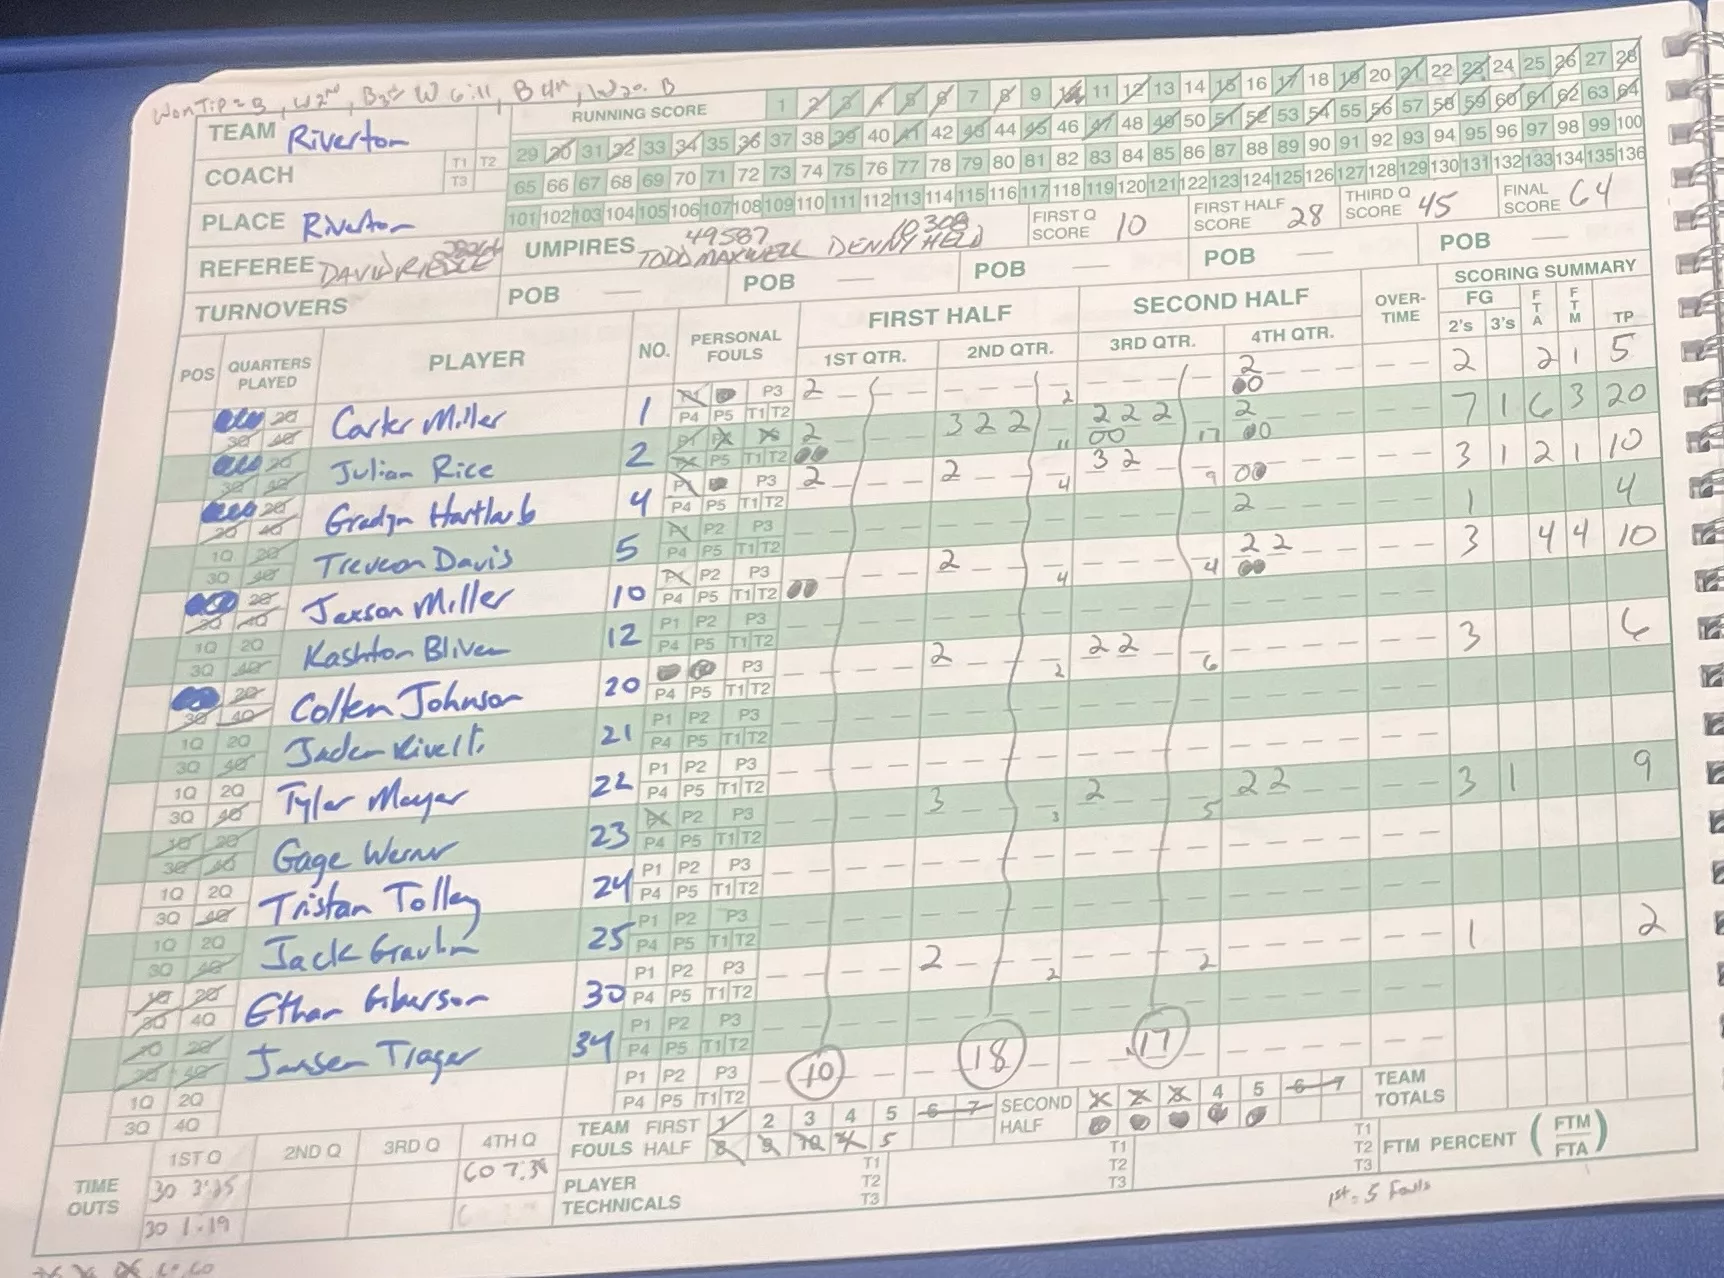 Won Tip = B, W 2nd, B 3rd W
RUNNING SCORE 1 2 3 4 5 6 7 8 9 10 11 12 13 14 15 16 17 18 19 20 21 22 23 24 25 26 27 28
TEAM Riverton
29 30 31 32 33 34 35 36 37 38 39 40 41 42 43 44 45 46 47 48 49 50 51 52 53 54 55 56 57 58 59 60 61 62 63 64
COACH T1 T2 T3
65 66 67 68 69 70 71 72 73 74 75 76 77 78 79 80 81 82 83 84 85 86 87 88 89 90 91 92 93 94 95 96 97 98 99 100
101 102 103 104 105 106 107 108 109 110 111 112 113 114 115 116 117 118 119 120 121 122 123 124 125 126 127 128 129 130 131 132 133 134 135 136
PLACE Riverton
UMPIRES 49587 TODD MAXWELL 10308 DENNY HELD
FIRST Q SCORE 10 FIRST HALF SCORE 28 THIRD Q SCORE 45 FINAL SCORE 64
REFEREE DAVID
TURNOVERS POB — POB — POB — POB — POB —
POS QUARTERS PLAYED PLAYER NO. PERSONAL FOULS FIRST HALF SECOND HALF OVER-TIME SCORING SUMMARY
1ST QTR. 2ND QTR. 3RD QTR. 4TH QTR. FG 2's 3's FTA FTM TP
Carter Miller 1 P3 P4 P5 T1 T2 2 2 2 2 2 1 5
Julian Rice 2 P5 T1 T2 2 3 2 2 11 2 2 2 17 2 7 1 6 3 20
Gradyn Hartlaub 4 P1 P3 P4 P5 T1 T2 2 2 4 3 2 9 3 1 2 1 10
Treveon Davis 5 P1 P2 P3 P4 P5 T1 T2 2 1 4
Jaxson Miller 10 P1 P2 P3 P4 P5 T1 T2 2 4 4 2 2 3 4 4 10
Kashton Bliven 12 P1 P2 P3 P4 P5 T1 T2
Colten Johnson 20 P3 P4 P5 T1 T2 2 2 2 2 6 3 6
Jaden 21 P1 P2 P3 P4 P5 T1 T2
Tyler Mayer 22 P1 P2 P3 P4 P5 T1 T2
Gage Werner 23 P1 P2 P3 P4 P5 T1 T2 3 3 2 5 2 2 3 1 9
Tristan Tolley 24 P1 P2 P3 P4 P5 T1 T2
Jack 25 P1 P2 P3 P4 P5 T1 T2
Ethan Giberson 30 P1 P2 P3 P4 P5 T1 T2 2 2 2 1 2
Jansen Trager 34 P1 P2 P3 P4 P5 T1 T2
1Q 2Q 3Q 4Q P1 P2 P3 P4 P5 T1 T2 10 18 17
TEAM FOULS FIRST HALF 1 2 3 4 5 6 7 SECOND HALF 4 5 6 7 TEAM TOTALS
TIME OUTS 1ST Q 2ND Q 3RD Q 4TH Q
30 3:25 60 7:38
30 1:19
PLAYER TECHNICALS T1 T2 T3 T1 T2 T3 T1 T2 T3 FTM PERCENT (FTM/FTA)
1st = 5 Fouls